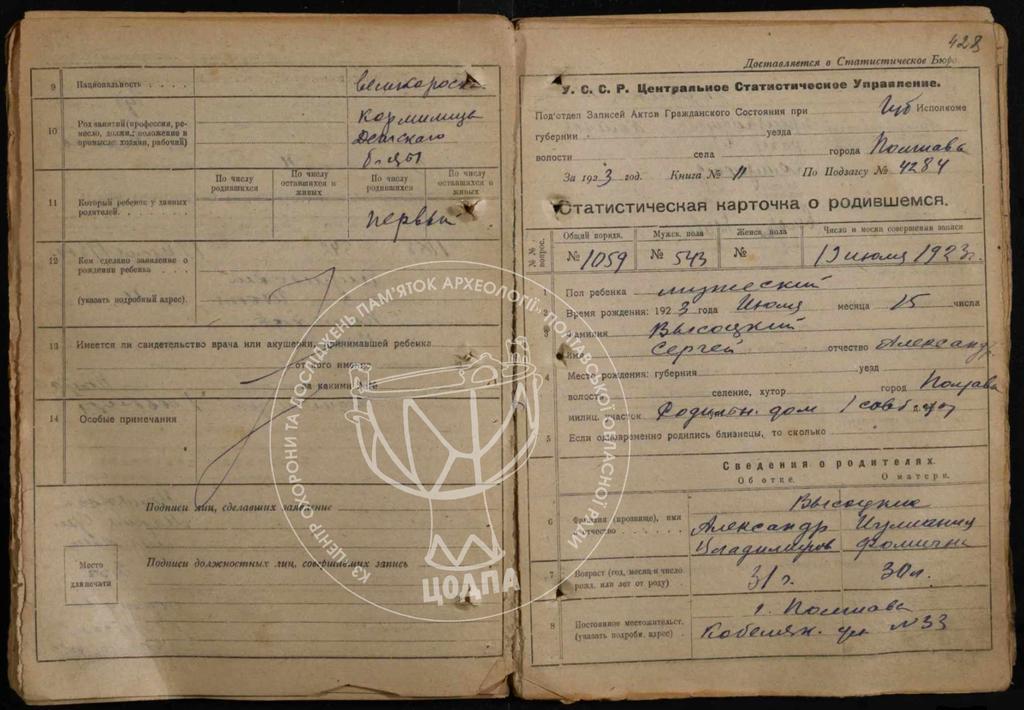 9 Национальность . . . . великоросс.
10 Род занятий (профессия, ремесло, должн.; положение в промысле: хозяин, рабочий)
кормилица
Детскаго
б-цы
По числу родившихся
По числу оставшихся в живых
По числу родившихся
По числу оставшихся в живых
11 Который ребенок у данных родителей. . . . . .
первый
12 Кем сделано заявление о рождении ребенка . . .
(указать подробный адрес).
13 Имеется ли свидетельство врача или акушерки, принимавшей ребенка
от кого именно
за каким №
14 Особые примечания
Подписи лиц, сделавших заявление
Место для печати
Подписи должностных лиц, совершавших запись
428
Доставляется в Статистическое Бюро
У. С. С. Р. Центральное Статистическое Управление.
Под'отдел Записей Актов Гражданского Состояния при Губ Исполкоме
губернии уезда
волости села города Полтава
За 1923 год. Книга № 11 По Подзагсу № 4284
Статистическая карточка о родившемся.
№№ вопрос.
Общий порядк.
Мужск. пола
Женск. пола
Число и месяц совершения записи
№ 1059
№ 543
№
19 июля 1923 г.
Пол ребенка мужеский
2 Время рождения: 1923 года Июля месяца 15 числа
3 Фамилия Высоцкий
имя Сергей отчество Александр.
4 Место рождения: губерния уезд
волость селение, хутор город Полтава
милиц. участок Родильн. дом 1 совб.
5 Если одновременно родились близнецы, то сколько
Сведения о родителях.
Об отце. О матери.
Высоцкие
6 Фамилия (прозвище), имя отчество . . . . .
Александр
Владимиров
Иулиания
Фомична
7 Возраст (год, месяц и число рожд. или лет от роду)
31 г. 30 л.
8 Постоянное местожительст. (указать подробн. адрес) .
г. Полтава
Кобеляк. ул N 33
КЗ "ЦЕНТР ОХОРОНИ ТА ДОСЛІДЖЕНЬ ПАМ'ЯТОК АРХЕОЛОГІЇ" ПОЛТАВСЬКОЇ ОБЛАСНОЇ РАДИ
ЦОДПА